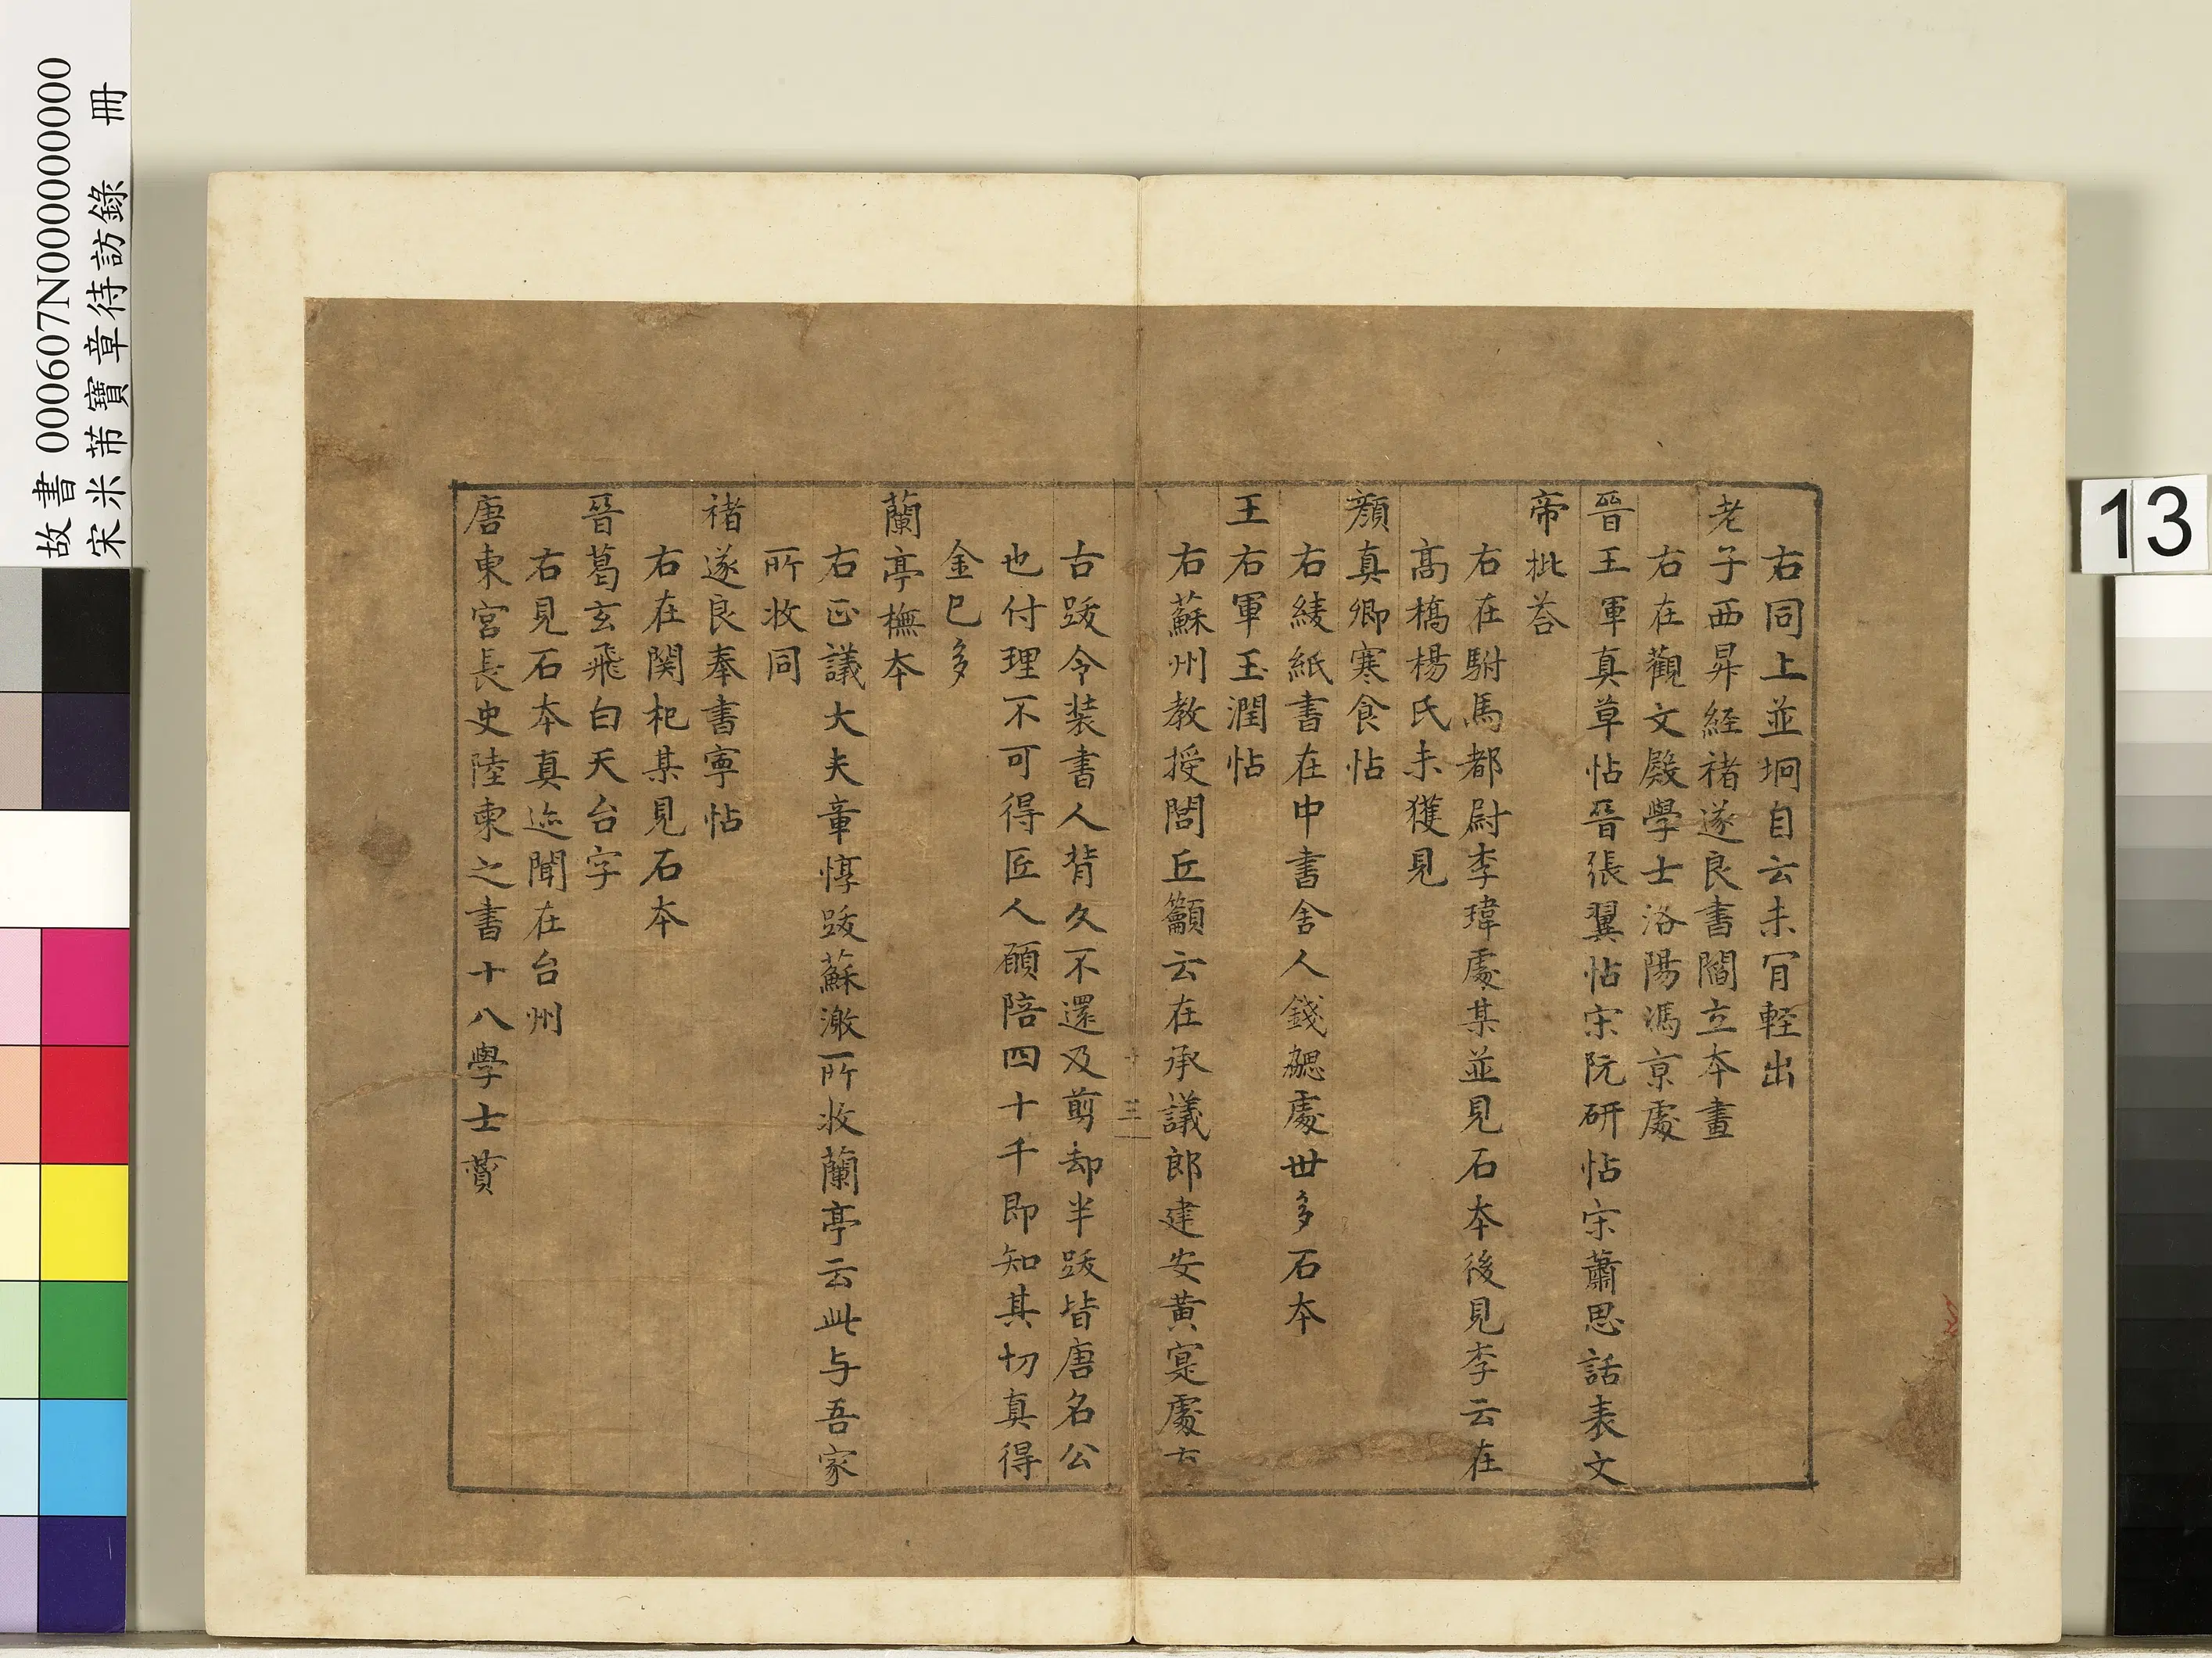 故書 000607N000000000
宋米芾寶章待訪錄 冊
13
右同上並坰自云未肎輕出
老子西昇經褚遂良書閻立本畫
右在觀文殿學士洛陽馮京處
晉王軍真草帖晉張翼帖宋阮研帖宋蕭思話表文
帝批荅
右在駙馬都尉李瑋處某並見石本後見李云在
髙橋楊氏未獲見
顏真卿寒食帖
右綾紙書在中書舍人錢勰處世多石本
王右軍玉潤帖
右蘇州教授閭丘籲云在承議郎建安黄寔處古
三
古跋令装書人背久不還及剪却半跋皆唐名公
也付理不可得匠人願陪四十千即知其切真得
金巳多
蘭亭橅本
右正議大夫章惇跋蘇澈所收蘭亭云此与吾家
所收同
褚遂良奉書寧帖
右在関杞某見石本
晉葛玄飛白天台字
右見石本真迹聞在台州
唐東宮長史陸柬之書十八學士賛